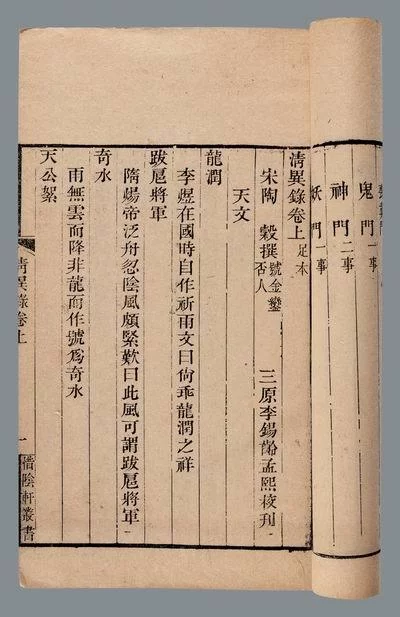 鬼門一事
神門二事
妖門一事
清異錄卷上 足本
宋陶 穀撰 號金鑾否人 三原李錫齡孟熙校刊
天文
龍潤
李煜在國時自作祈雨文曰尚乖龍潤之祥
跋扈將軍
隋煬帝泛舟忽陰風頗緊歎曰此風可謂跋扈將軍
奇水
雨無雲而降非龍而作號爲奇水
天公絮
清異錄卷上 一 惜陰軒叢書